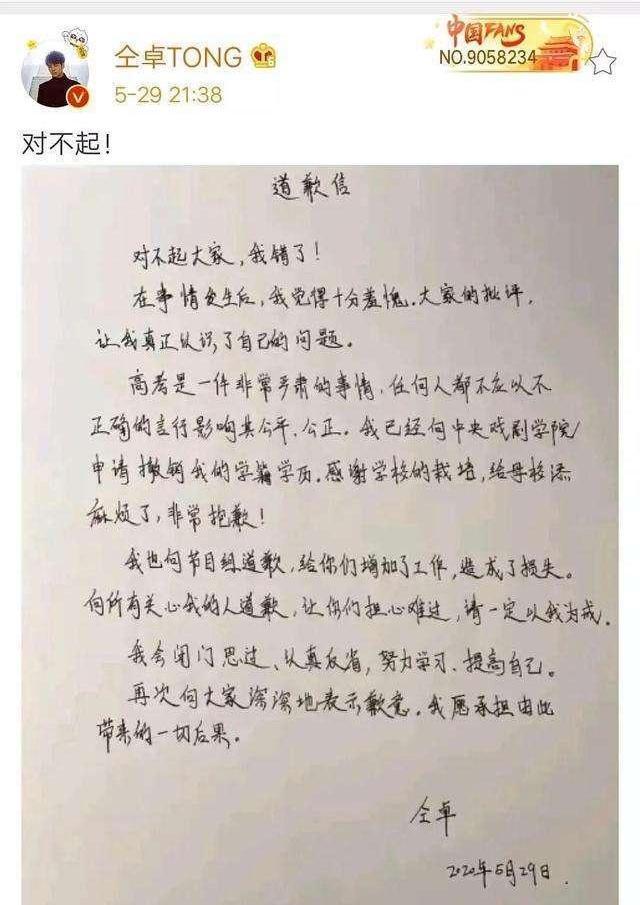 仝卓TONG
中国FANS
NO.9058234
5-29 21:38
对不起！
道歉信
对不起大家，我错了！
在事情发生后，我觉得十分羞愧。大家的批评，
让我真正认识了自己的问题。
高考是一件非常严肃的事情，任何人都不应以不
正确的言行影响其公平、公正。我已经向中央戏剧学院
申请撤销我的学籍学历。感谢学校的栽培，给母校添
麻烦了，非常抱歉！
我也向节目组道歉，给你们增加了工作，造成了损失。
向所有关心我的人道歉，让你们担心难过，请一定以我为戒。
我会闭门思过、认真反省，努力学习、提高自己。
再次向大家深深地表示歉意。我愿承担由此
带来的一切后果。
仝卓
2020年5月29日.